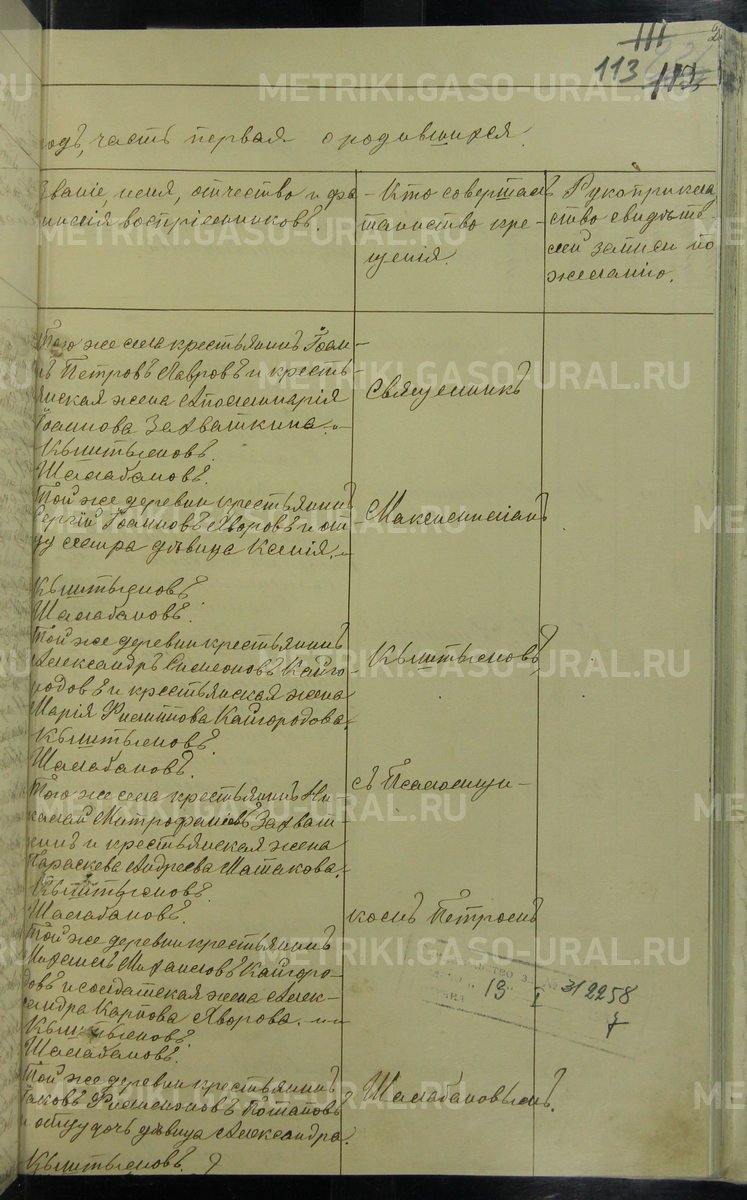 111
113
METRIKI.GASO-URAL.RU
одъ, часть первая о родившихся.
Званіе, имя, отчество и фа-
милія воспріемниковъ.
Кто совершалъ
таинство кре-
щенія.
Рукоприкла
ство свидѣте-
лей записи по
желанію.
Того же села крестьянинъ Іоан-
нъ Петровъ Лавровъ и кресть-
янская жена Аполлинарія
Іоаннова Захваткина.
Кыштымовъ.
Шалабановъ.
Той же деревни крестьянинъ
Сергій Іоанновъ Яворовъ и
сестра дѣвица Ксенія.
Кыштымовъ.
Шалабановъ.
Той же деревни крестьянинъ
Александръ Симеоновъ Кайго-
родовъ и крестьянская жена
Марія Филиппова Кайгородова.
Кыштымовъ.
Шалабановъ.
Того же села крестьянинъ Ни-
колай Митрофановъ Захват-
кинъ и крестьянская жена
Параскева Андреева Маталова.
Кыштымовъ.
Шалабановъ.
Той же деревни крестьянинъ
Михаилъ Михаиловъ Кайгоро-
довъ и солдатская жена Алек-
сандра Карпова Яворова.
Кыштымовъ.
Шалабановъ.
Той же деревни крестьянинъ
Іаковъ Филимоновъ Потаповъ
дочь дѣвица Александра.
Кыштымовъ.
Священникъ
Максимиліанъ
Кыштымовъ,
съ Псаломщи-
комъ Петромъ
Шалабановымъ.
19 I 312258
7